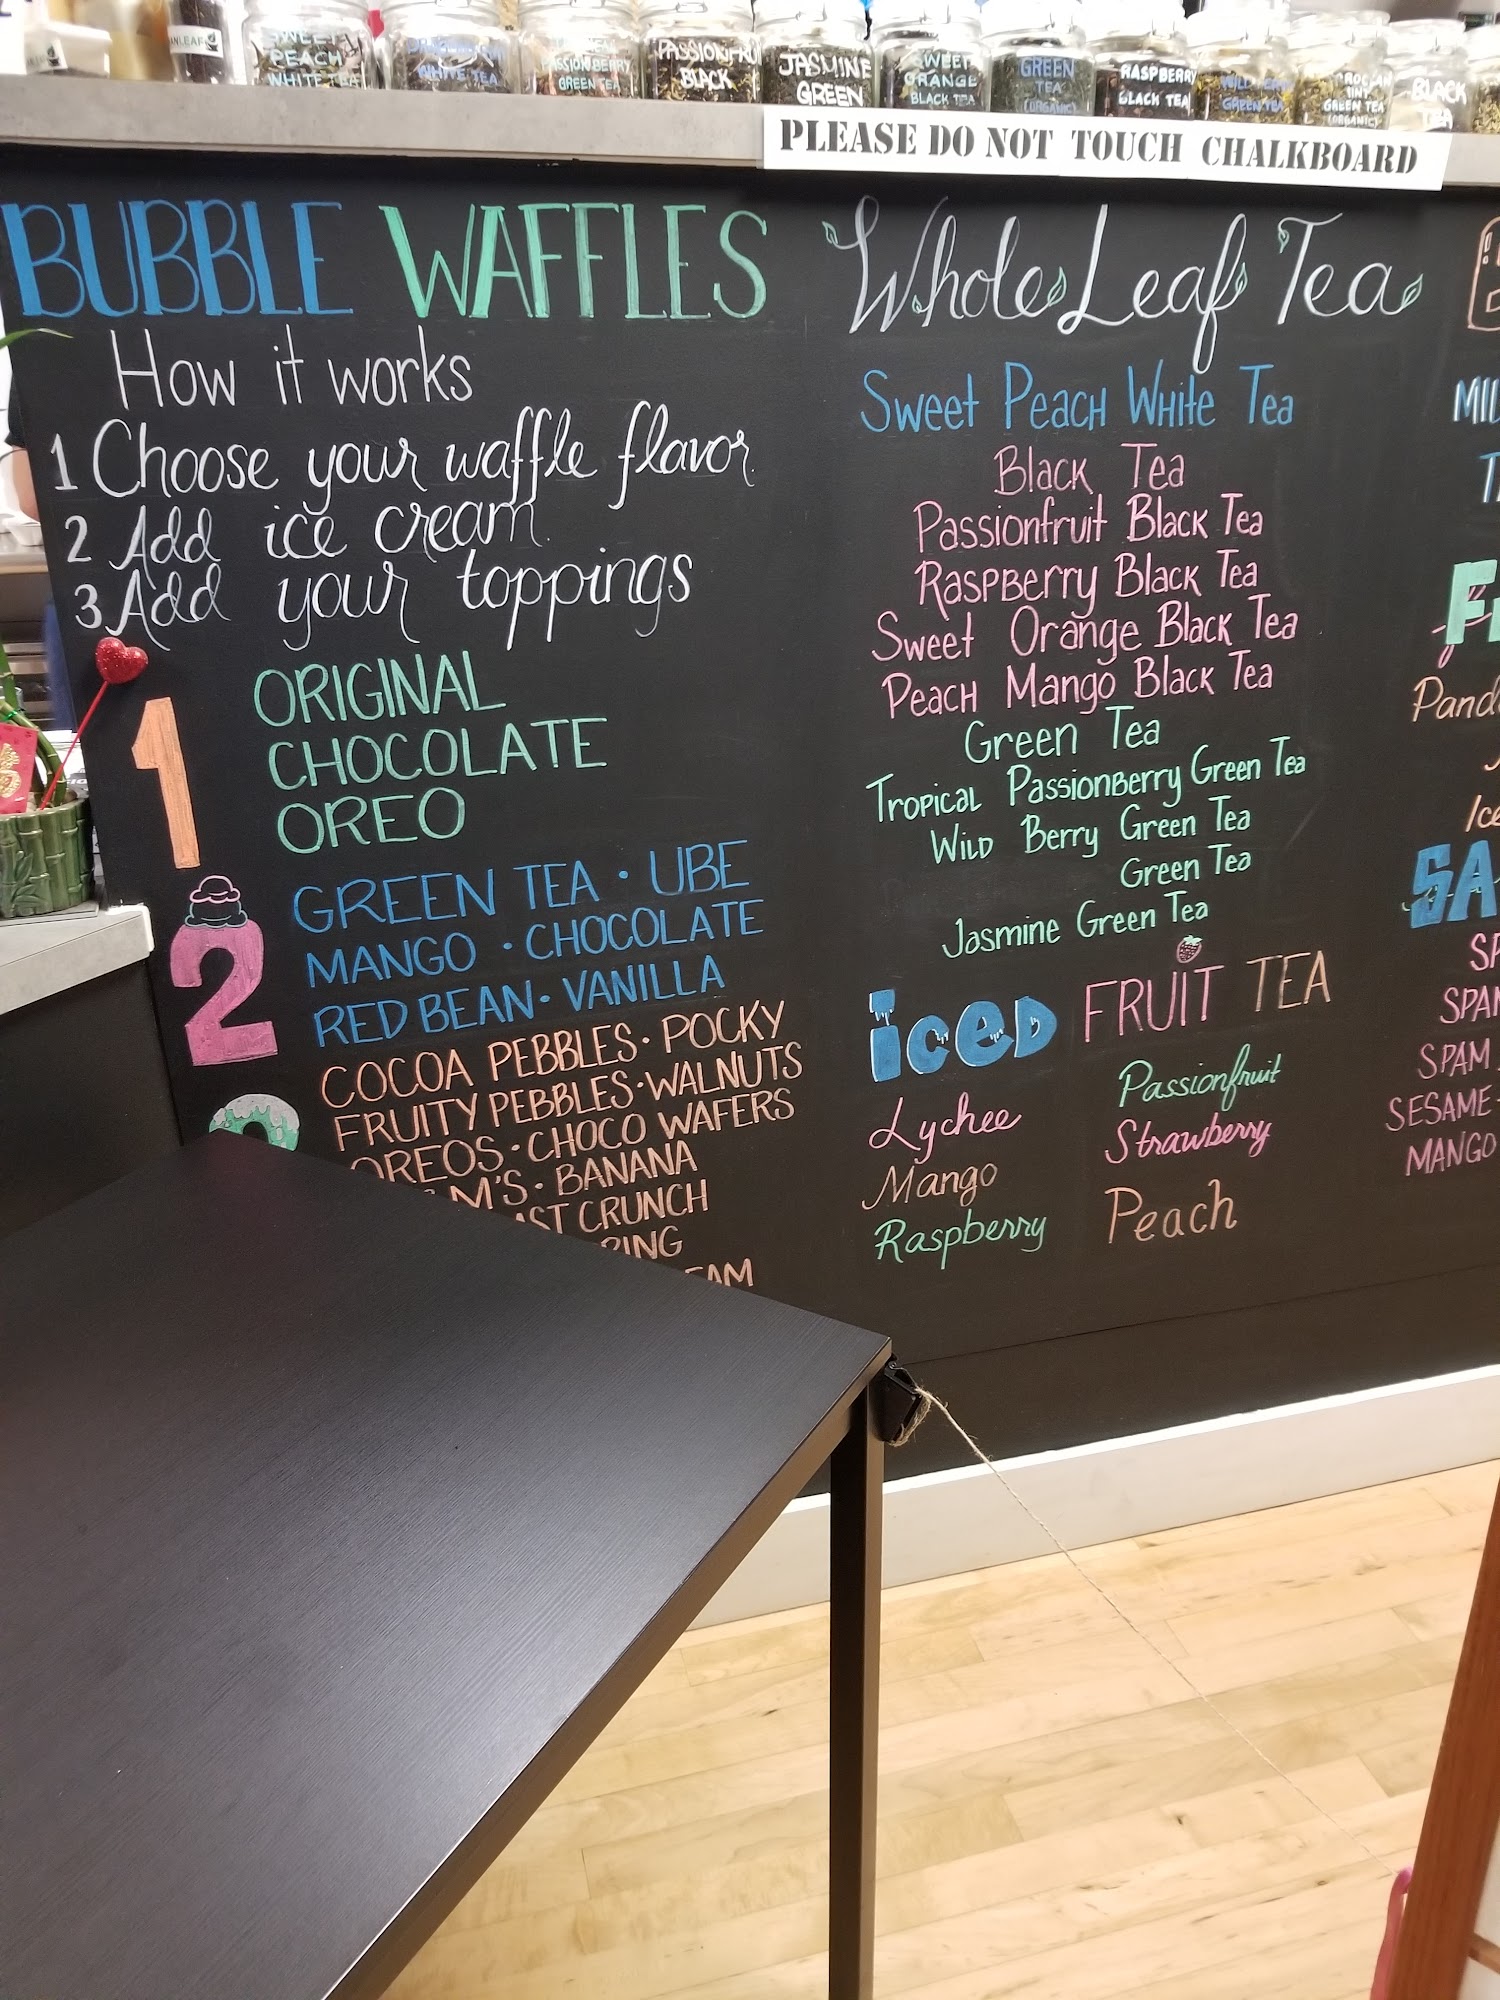 SWEET
PEACH
WHITE TEA
WHITE TEA
PASSIONBERRY
GREEN TEA
PASSIONFRU
BLACK
JASMINE
GREEN
SWEET
ORANGE
BLACK TEA
GREEN
TEA
(ORGANIC)
RASPBERRY
BLACK TEA
GREEN TEA
GREEN TEA
(ORGANIC)
BLACK
TEA
PLEASE DO NOT TOUCH CHALKBOARD
BUBBLE WAFFLES
How it works
1 Choose your waffle flavor
2 Add ice cream
3 Add your toppings
1
ORIGINAL
CHOCOLATE
OREO
2
GREEN TEA · UBE
MANGO · CHOCOLATE
RED BEAN · VANILLA
COCOA PEBBLES · POCKY
FRUITY PEBBLES · WALNUTS
OREOS · CHOCO WAFERS
M'S · BANANA
AST CRUNCH
Whole Leaf Tea
Sweet Peach White Tea
Black Tea
Passionfruit Black Tea
Raspberry Black Tea
Sweet Orange Black Tea
Peach Mango Black Tea
Green Tea
Tropical Passionberry Green Tea
Wild Berry Green Tea
Green Tea
Jasmine Green Tea
iced FRUIT TEA
Lychee
Mango
Raspberry
Passionfruit
Strawberry
Peach
MIL
Pand
Ice
SA
SP
SPAM
SPAM
SESAME
MANGO